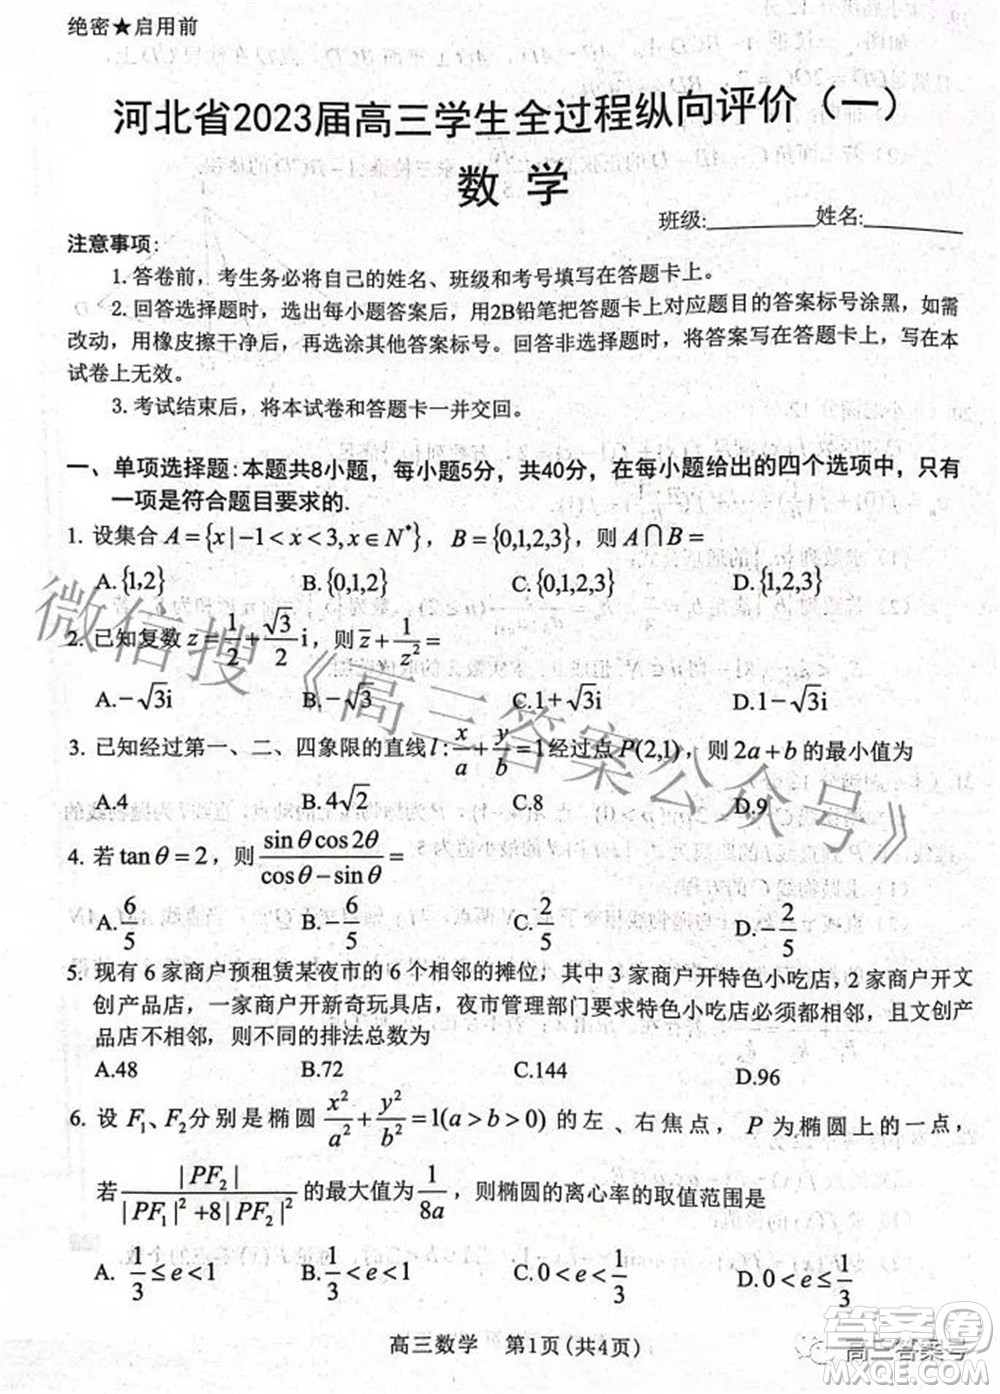 绝密★启用前
河北省2023届高三学生全过程纵向评价（一）
数 学
班级:________姓名:________
注意事项:
1. 答卷前，考生务必将自己的姓名、班级和考号填写在答题卡上。
2. 回答选择题时，选出每小题答案后，用2B铅笔把答题卡上对应题目的答案标号涂黑，如需
改动，用橡皮擦干净后，再选涂其他答案标号。回答非选择题时，将答案写在答题卡上，写在本
试卷上无效。
3. 考试结束后，将本试卷和答题卡一并交回。
一、单项选择题:本题共8小题，每小题5分，共40分，在每小题给出的四个选项中，只有
一项是符合题目要求的.
1. 设集合 A={x|-1<x<3,x∈N*}，B={0,1,2,3}，则 A∩B=
A.{1,2} B.{0,1,2} C.{0,1,2,3} D.{1,2,3}
2. 已知复数 z=1/2+√3/2 i，则 z̄+1/z²=
A.-√3i B.-√3 C.1+√3i D.1-√3i
3. 已知经过第一、二、四象限的直线 l:x/a+y/b=1经过点 P(2,1)，则 2a+b 的最小值为
A.4 B.4√2 C.8 D.9
4. 若 tanθ=2，则 sinθcos2θ/(cosθ-sinθ)=
A.6/5 B.-6/5 C.2/5 D.-2/5
5. 现有 6 家商户预租赁某夜市的 6 个相邻的摊位，其中 3 家商户开特色小吃店，2 家商户开文
创产品店，一家商户开新奇玩具店，夜市管理部门要求特色小吃店必须都相邻，且文创产品
店不相邻，则不同的排法总数为
A.48 B.72 C.144 D.96
6. 设 F₁、F₂分别是椭圆 x²/a²+y²/b²=1(a>b>0) 的左、右焦点，P 为椭圆上的一点，
若 |PF₂|/(|PF₁|²+8|PF₂|²) 的最大值为 1/8a，则椭圆的离心率的取值范围是
A. 1/3≤e<1 B. 1/3<e<1 C. 0<e<1/3 D. 0<e≤1/3
高三数学 第1页(共4页)
微信搜《高三答案公众号》
高三答案号